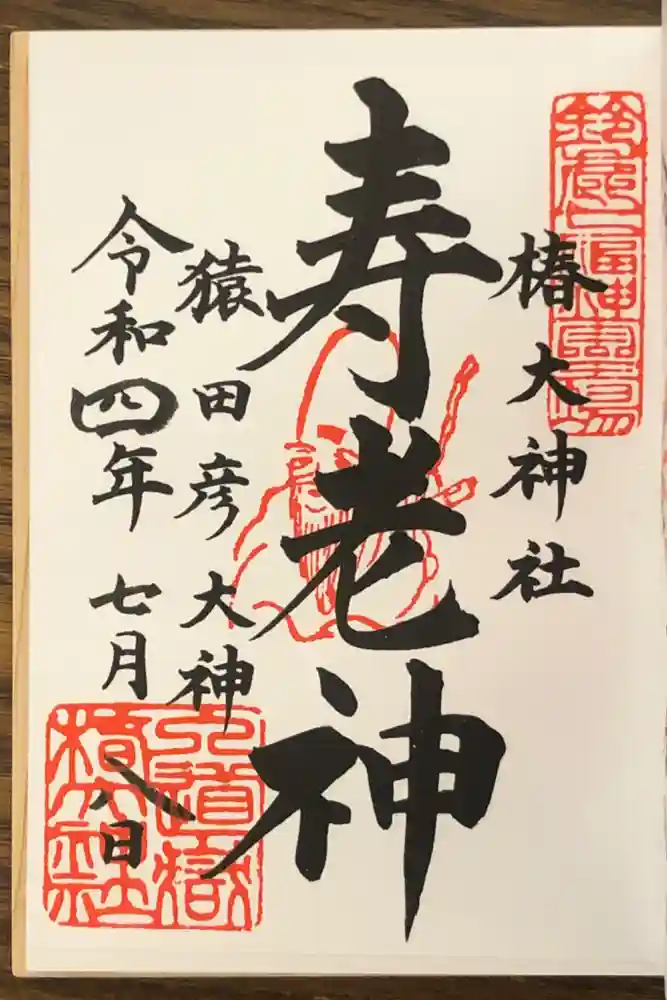 鈴鹿七福神霊場
椿大神社
寿老神
猿田彦大神
令和四年七月八日
入道嶽
椿大神社